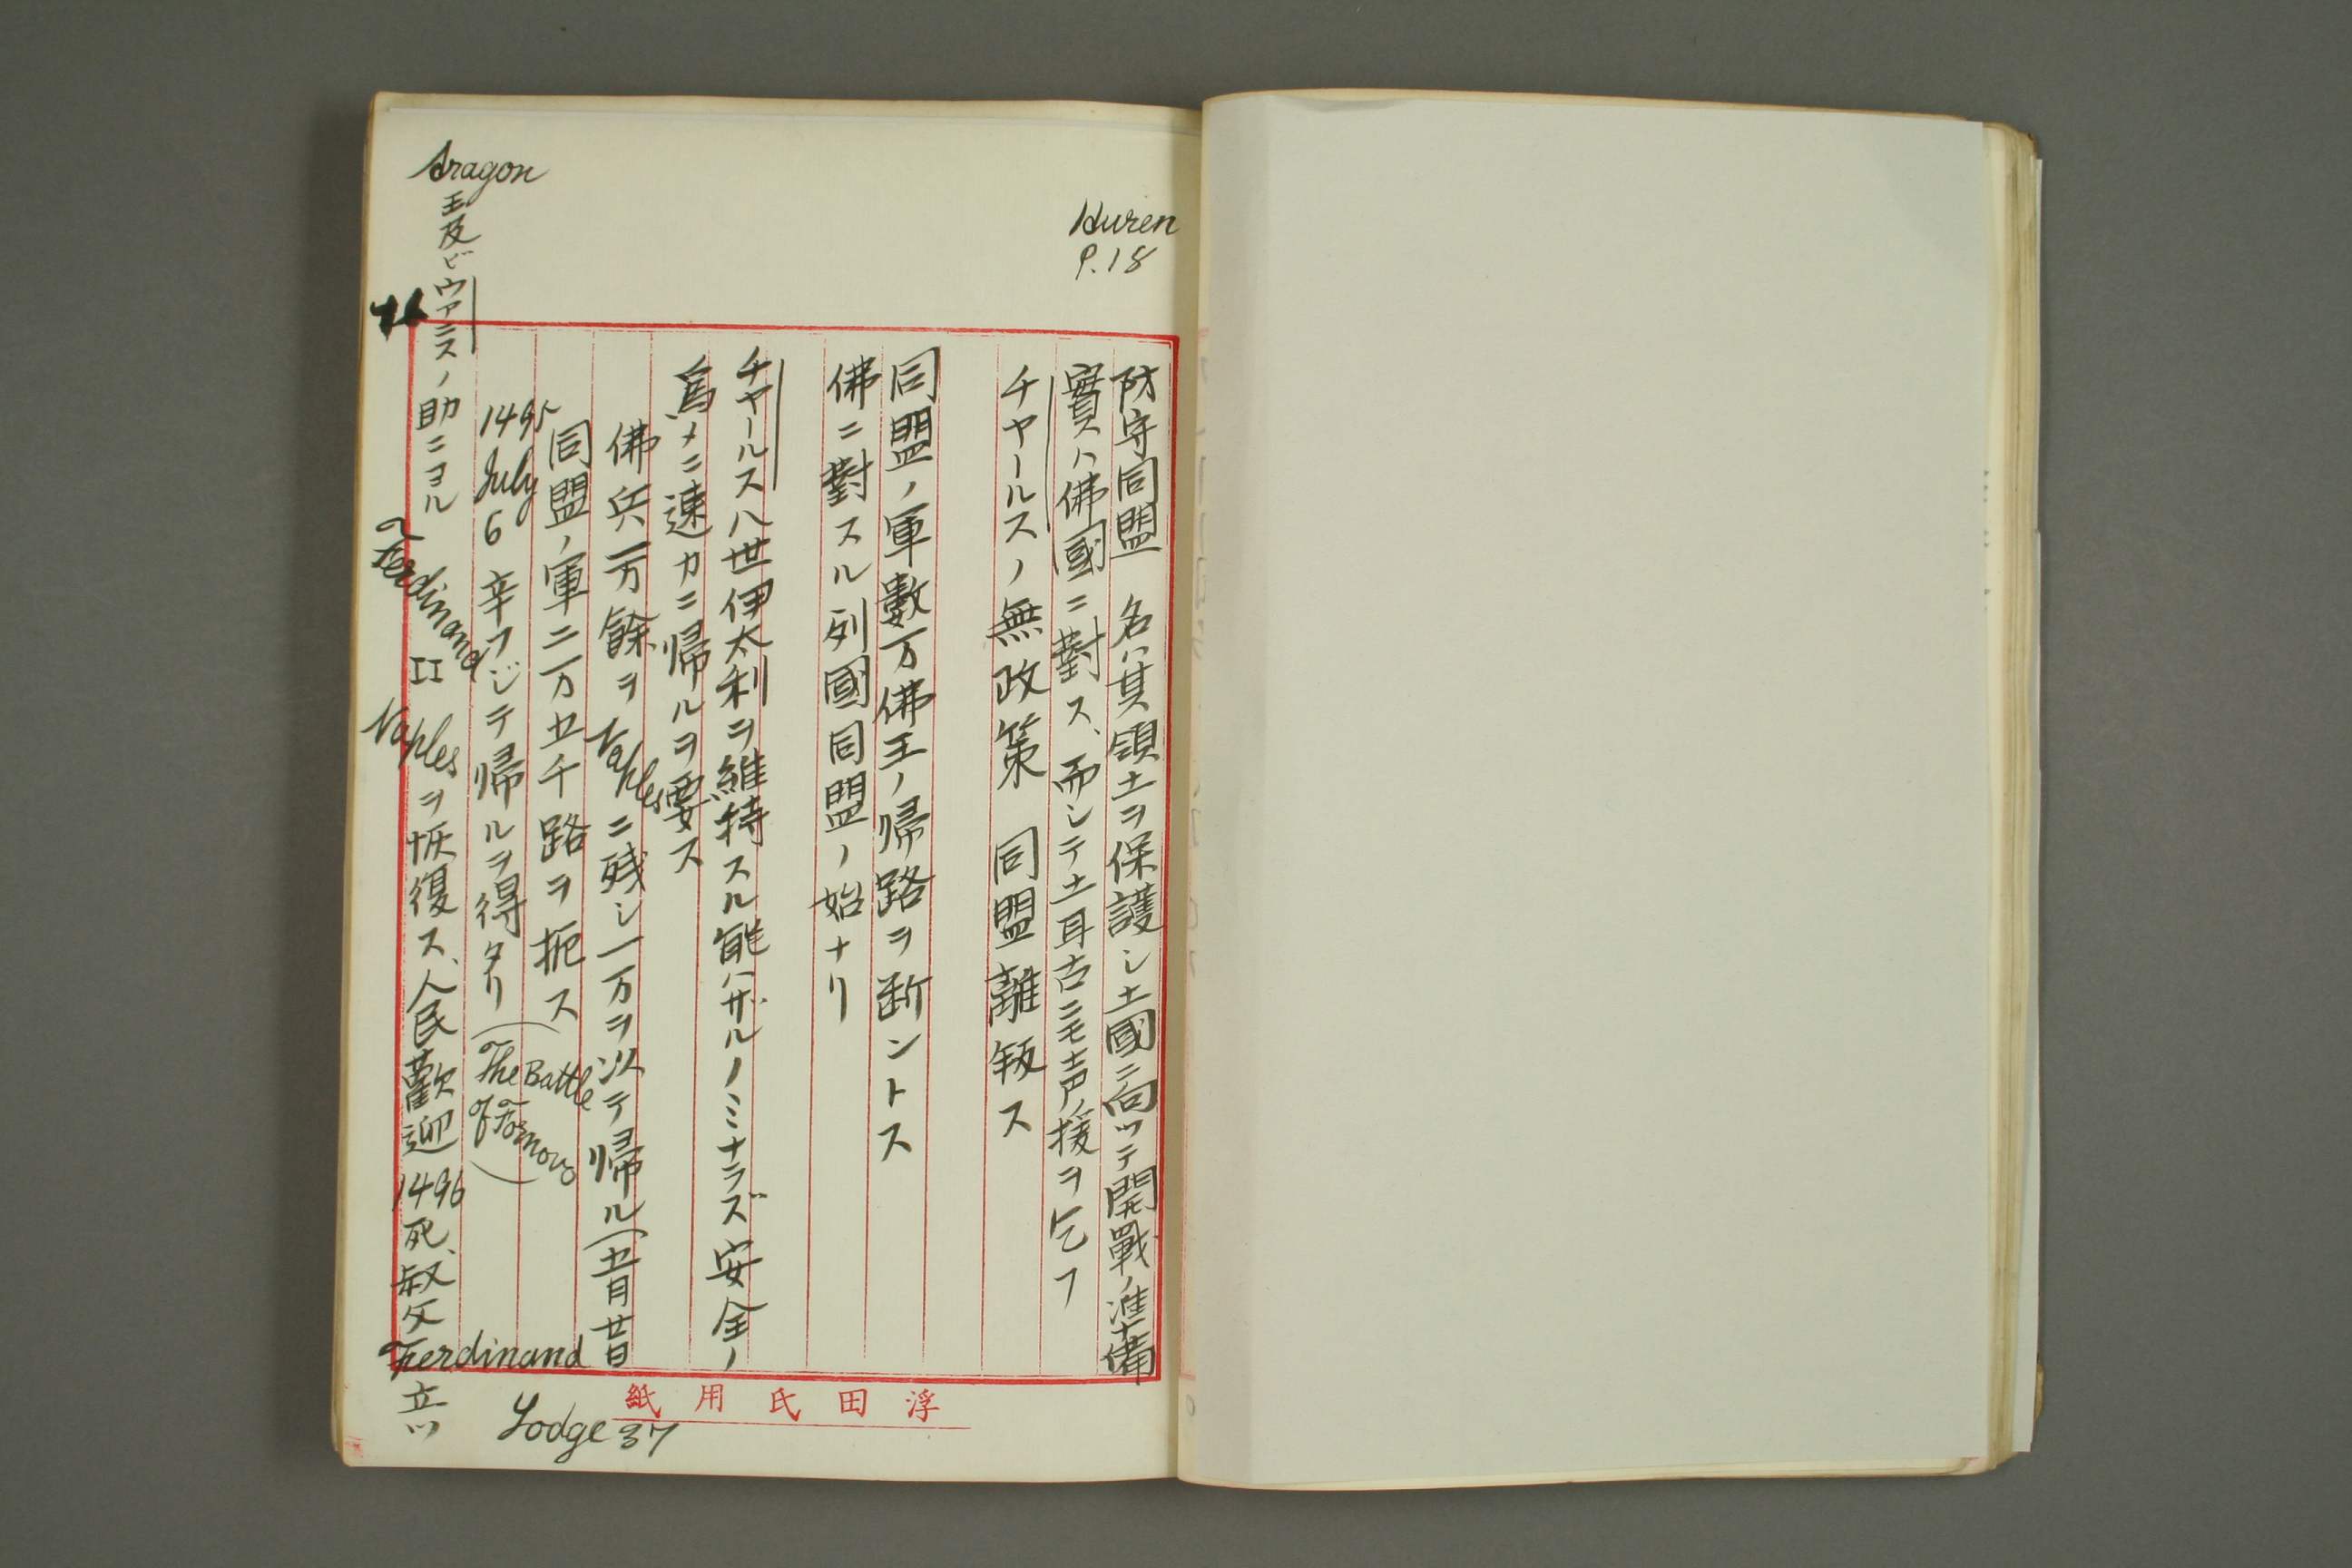 Huren
P. 18
防守同盟　名ハ其領土ヲ保護シ土國ニ向ツテ開戰ノ準備
實ハ佛國ニ對ス、而シテ土耳古ニモ声援ヲ乞フ
チャールスノ無政策　同盟離叛ス
同盟ノ軍數万佛王ノ帰路ヲ断ントス
佛ニ對スル列國同盟ノ始ナリ
チャールス八世伊太利ヲ維持スル能ハザルノミナラズ安全ノ
為メニ速カニ帰ルヲ要ス
佛兵一万餘ヲNaplesニ残シ一万ヲ以テ帰ル（五月廿日
同盟ノ軍三万五千路ヲ扼ス
1495 July 6 辛フジテ帰ルヲ得タリ（The Battle of Fornovo）
Aragon王及ビヴァニスノ助ニヨル Ferdinand II Naplesヲ恢復ス、人民歡迎 1496死、叔父Ferdinand立ツ
Lodge 37
浮田氏用紙